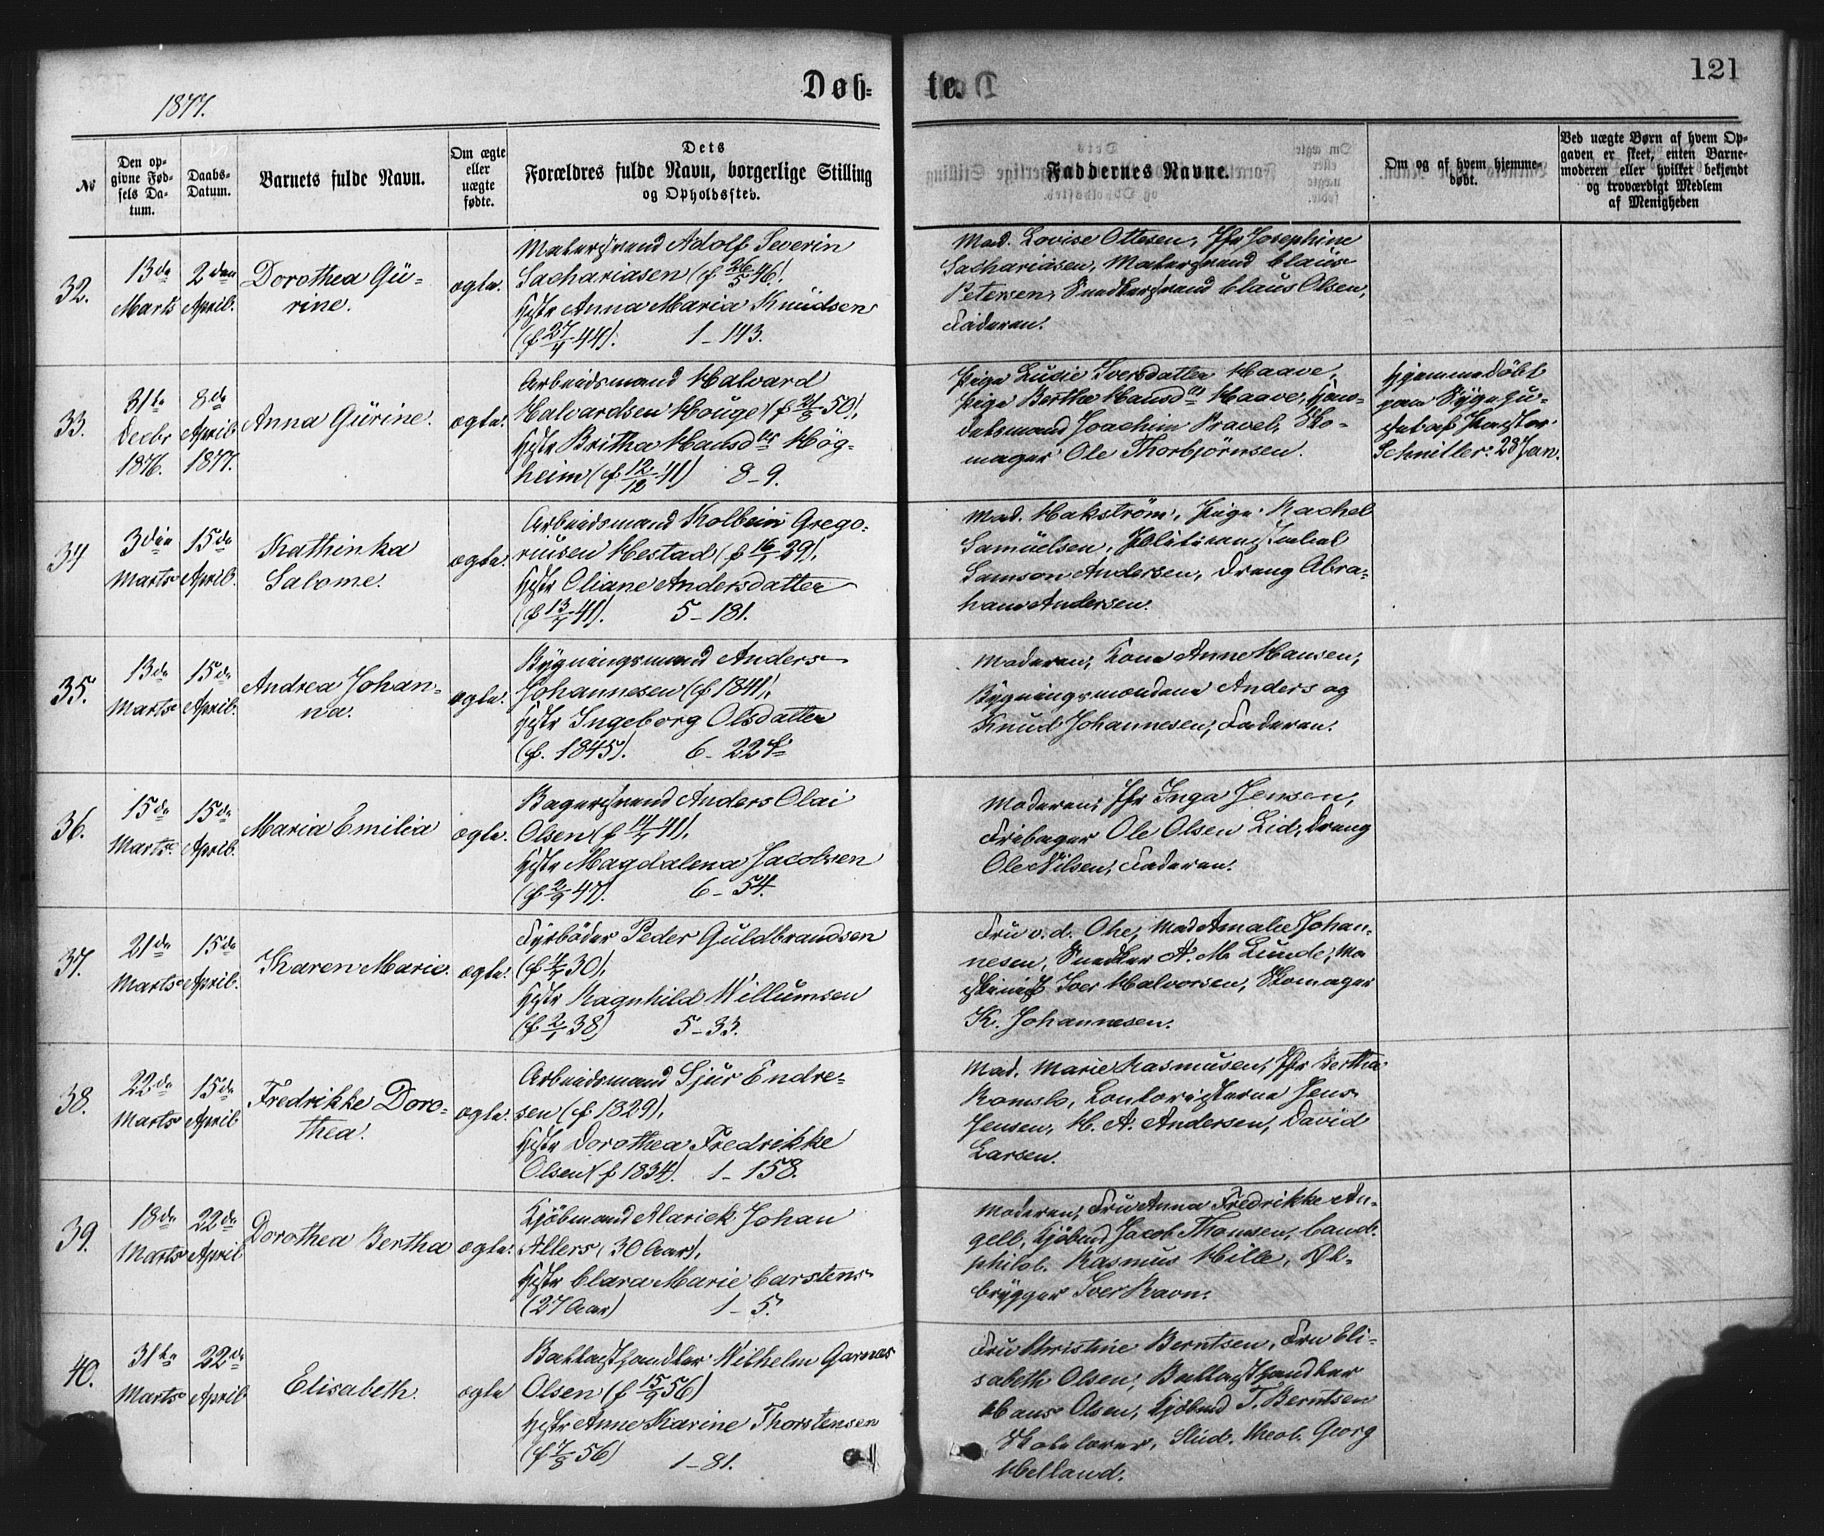 121
Døb-
te.
1877.
No
Den op-
givne Fød-
sels Da-
tum.
Daabs-
Datum.
Barnets fulde Navn.
Om ægte
eller
uægte
fødte.
Dets
Forældres fulde Navn, borgerlige Stilling
og Opholdssted.
Faddernes Navne.
Om og af hvem hjemme-
døbt.
Ved uægte Børn af hvem Op-
gaven er skeet, enten Barne-
moderen eller hvilket bekjendt
og troværdigt Medlem
af Menigheden
32.
13de
Marts
2den
April.
Dorothea Gü-
rine.
ægte.
Matersvend Adolf Severin
Sachariasen (f 26/5 46).
Hstr Anna Maria Knüdsen
(f 27/4 44). 1-143.
Mad. Lovise Ottesen, Jfr Josephine
Sachariasen, Matersvend Claus
Petersen, Snedkersvend Claus Olsen,
Faderen.
33.
31te
Decbr
1876.
8de
April
1877.
Anna Gürine.
ægte.
Arbeidsmand Halvard
Halvardsen Houge (f 21/5 50),
Hstr Britha Hansdtr Høg-
heim (f 12/12 41) 8-9.
Pige Lusie Iversdatter Haave,
Pige Berthe Hansdtr Haave, Han-
delsmand Joachim Pravel, Sko-
mager Ole Thorbjørnsen.
Hjemmedøbt
paa Sygehu-
set af Pastor
Schnitler: 28 Jan.
34
3die
Marts
15de
April.
Kathinka
Salome.
ægte.
Arbeidsmand Kolbein Grego-
riusen Hestad (f 16/1 29),
Hstr Oliane Andersdatter
(f 13/7 41). 5-181.
Mad. Hakstrøm, Pige Rachel
Samüelsen, Politiconstabel
Samson Andersen, Dreng Abra-
ham Andersen.
35.
13de
Marts
15de
April.
Andrea Johan-
na.
ægte.
Bygningsmand Anders
Johannesen (f 1841),
Hstr Ingeborg Olsdatter
(f. 1845). 6-22
Moderen, Kone Anne Hansen,
Bygningsmændene Anders og
Knud Johannesen, Faderen.
36.
15de
Marts
15de
April.
Maria Emilia
ægte.
Bagersvend Anders Olai
Olsen (f 14/5 41),
Hstr Magdalena Jacobsen
(f 2/9 47). 6-54.
Moderen, Jfr Inga Jensen,
Fribager Ole Olsen Lid, Dreng
Ole Nilsen, Faderen.
37.
21de
Marts
15de
April.
Karen Marie.
ægte.
Fyrbøder Peder Guldbrandsen
30),
Hstr Ragnhild Willumsen
38) 5-33.
Fru v. d. Ohe, Mad Amalie Johan-
nesen, Snedker A. M. Lunde, Ma-
skinist Iver Halvorsen, Skomager
K. Johannesen.
38.
22de
Marts
15de
April
Fredrikke Doro-
thea.
ægte.
Arbeidsmand Sjur Endre-
sen (f 1829),
Hstr Dorothea Fredrikke
Olsen (f 1834). 1-158.
Mad. Marie Rasmusen, Jfr Bertha
Romslo, Contoristerne Jens
Jensen, H. A. Andersen, David
Larsen.
39.
18de
Marts
22de
April
Dorothea Bertha
ægte.
Kjøbmand Alarick Johan
Allers (30 Aar),
Hstr Clara Marie Carstens
(27 Aar) 1-5.
Moderen, Fru Anna Fredrikke An-
gell, Kjøbmd Jacob Thomsen, Cand.
philol. Rasmus Hille, Øl-
brygger Iver Ravn.
40.
31te
Marts
22de
April
Elisabeth.
ægte
Ballasthandler Wilhelm Garmas
Olsen (f 15/9 56)
Hstr Anne Karine Thorstensen
56) 1-81.
Fru Christine Berntsen, Fru Eli-
sabeth Olsen, Ballasthandler
Hans Olsen, Kjøbmd T. Berntsen
Skolelærer, Stud. theol. Georg
Helland.